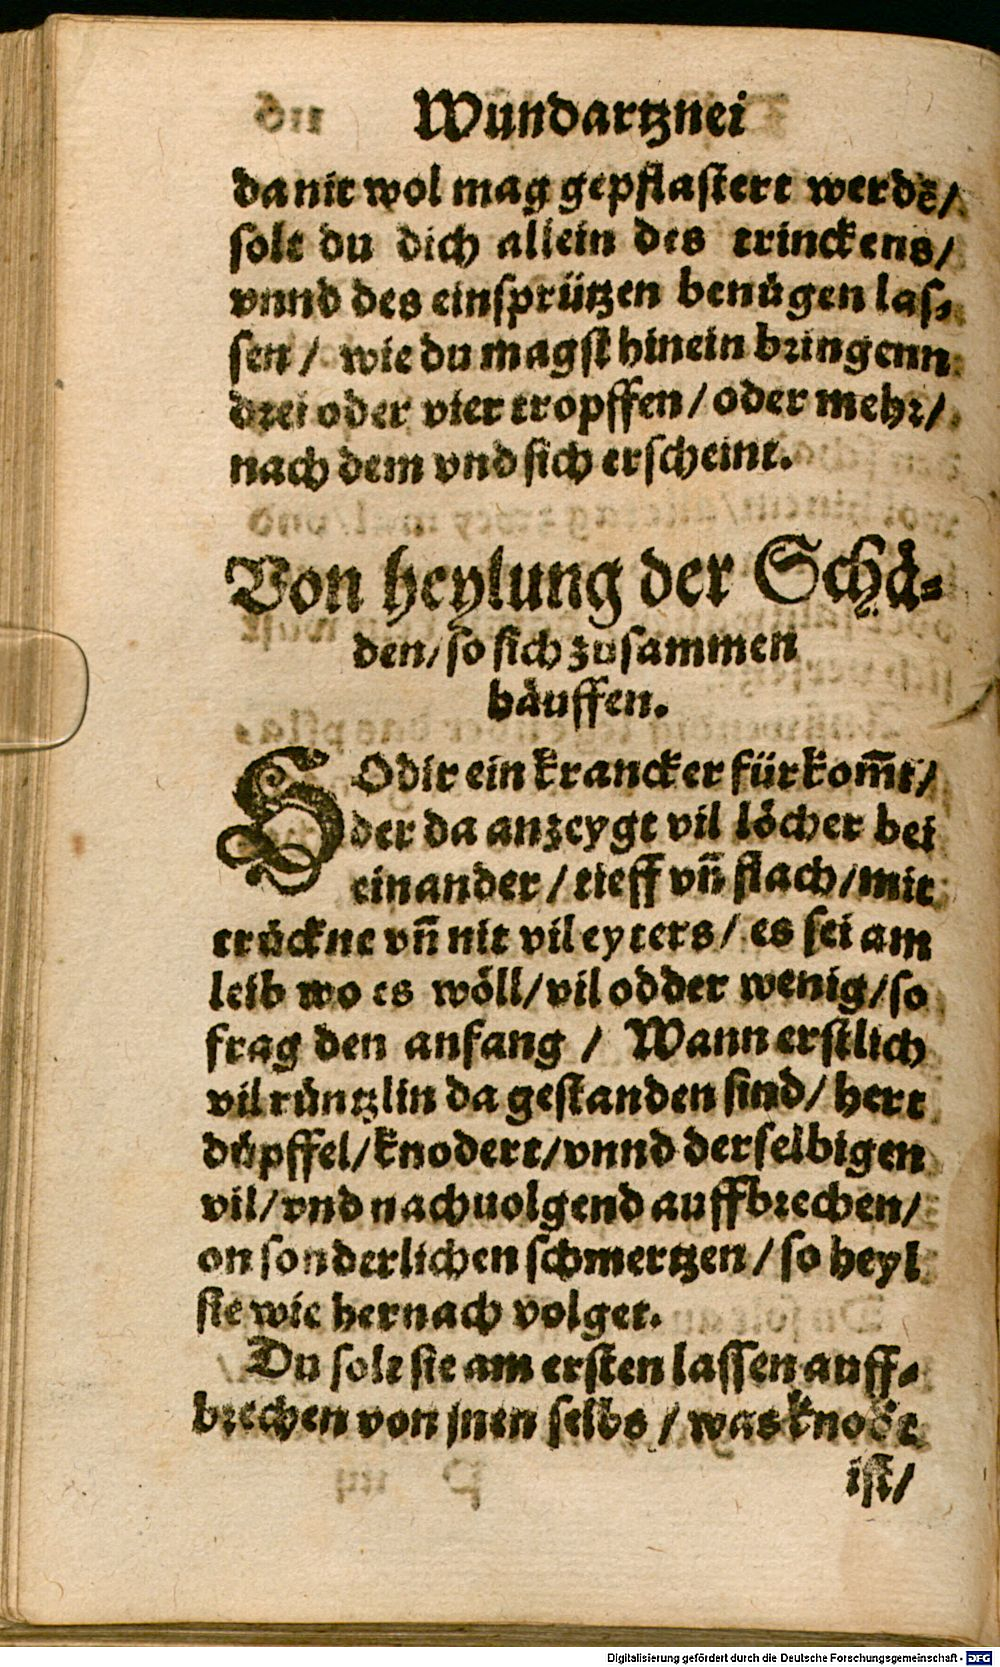 Wundartznei
da nit wol mag gepflastert werdē/
solt du dich allein des trinckens/
vnnd des einsprützen benügen las⸗
sen / wie du magst hinein bringenn
drei oder vier tropffen / oder mehr/
nach dem vnd sich erscheint.
Von heylung der Schä⸗
den/ so sich zusammen
häuffen.
SO dir ein krancker fürkom̄t/
der da anzeygt vil löcher bei
einander / tieff vn̄ flach/ mit
trückne vn̄ nit vil eyters/ es sei am
leib wo es wöll/ vil odder wenig/ so
frag den anfang / Wann erstlich
vil rüntzlin da gestanden sind/ hert
düpffel/ knodert/ vnnd derselbigen
vil/ vnd nachuolgend auffbrechen/
on sonderlichen schmertzen / so heyl
sie wie hernach volget.
Du solt sie am ersten lassen auff⸗
brechen von jnen selbs / was knodt
ist/
Digitalisierung gefördert durch die Deutsche Forschungsgemeinschaft - DFG